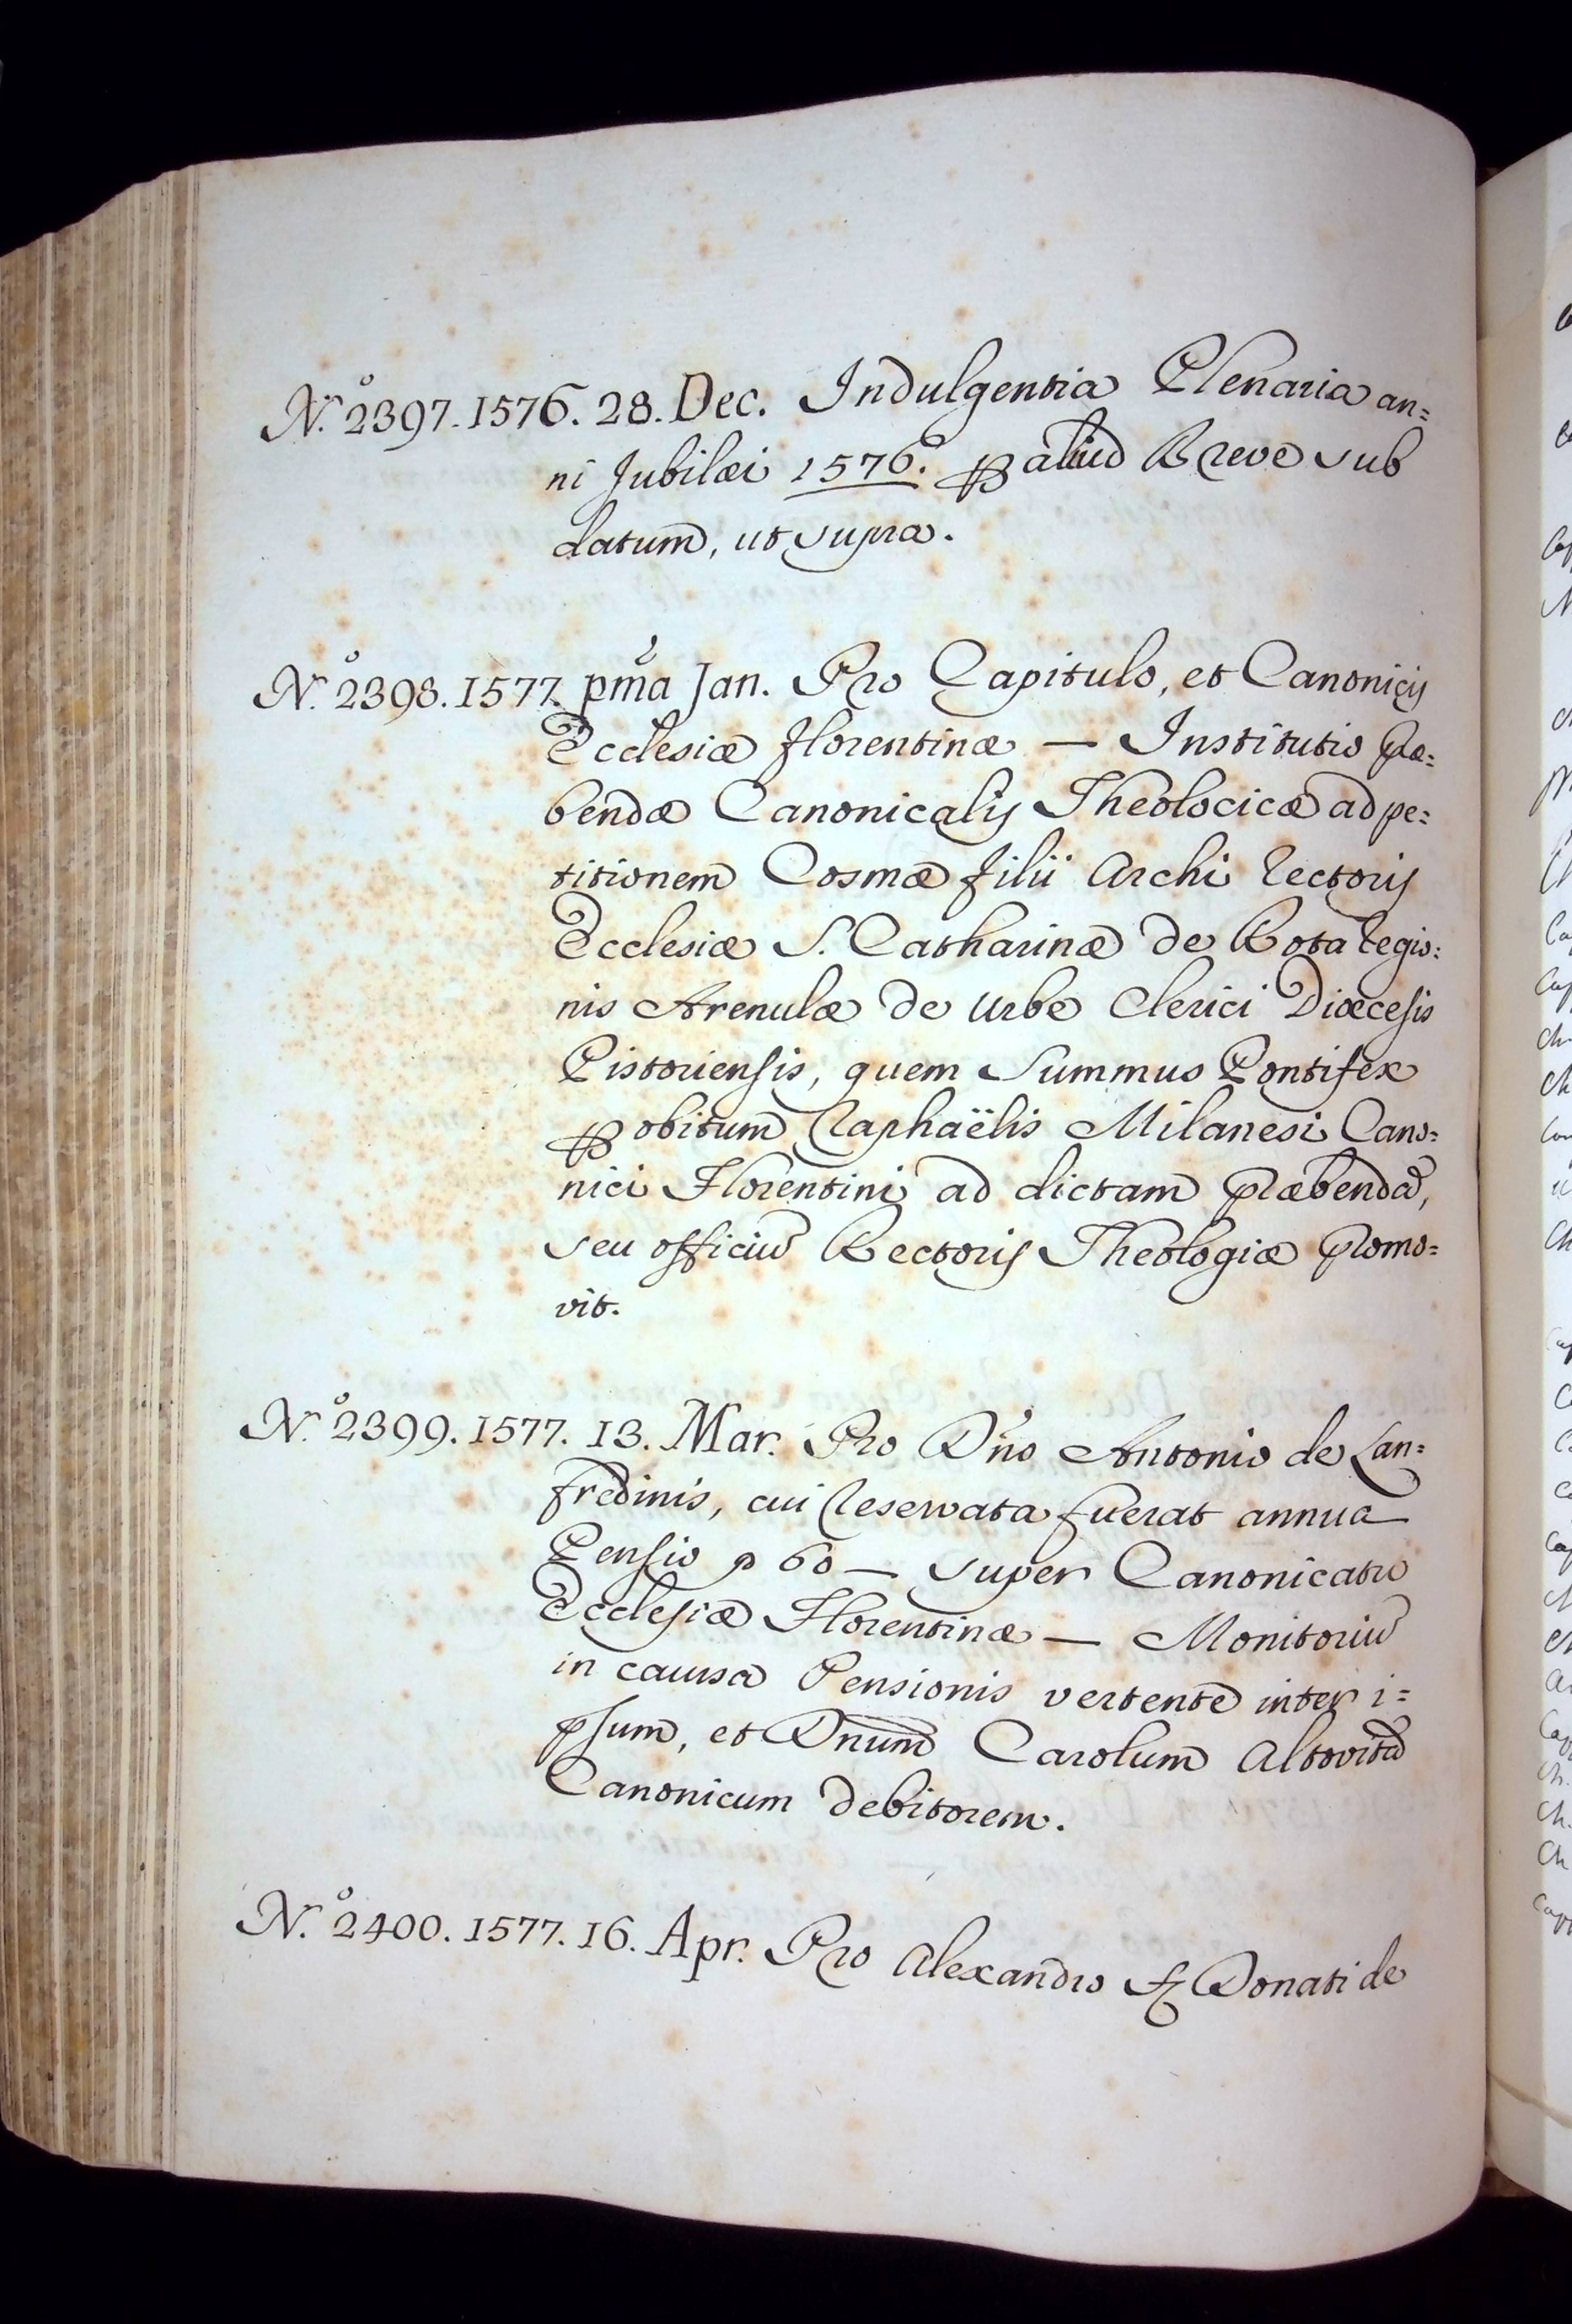 N.º 2397. 1576. 28. Dec. Indulgentia Plenaria an=
ni Jubilæi 1576. ꝑ aliud Breve sub
datum, ut supra.
N.º 2398. 1577. pm̃a Jan. Pro Capitulo, et Canonicis
Ecclesiæ Florentinæ — Institutio præ=
bendæ Canonicalis Theolocicæ ad pe=
titionem Cosmæ filii Archi Rectoris
Ecclesiæ S. Catharinæ de Rota Regio=
nis Arenulæ de Urbe Clerici Diœcesis
Pistoriensis, quem Summus Pontifex
ꝑ obitum Raphaëlis Milanesi Cano=
nici Florentini ad dictam præbendã,
seu officiũ Rectoris Theologiæ promo=
vit.
N.º 2399. 1577. 13. Mar. Pro Dño Antonio de Lan=
fredinis, cui reservata fuerat annua
Pensio 60 — super Canonicatu
Ecclesiæ Florentinæ — Monitoriũ
in causa Pensionis vertente inter i=
psum, et Dnum̃ Carolum Altovitã
Canonicum debitorem.
N.º 2400. 1577. 16. Apr. Pro Alexandro Donati de